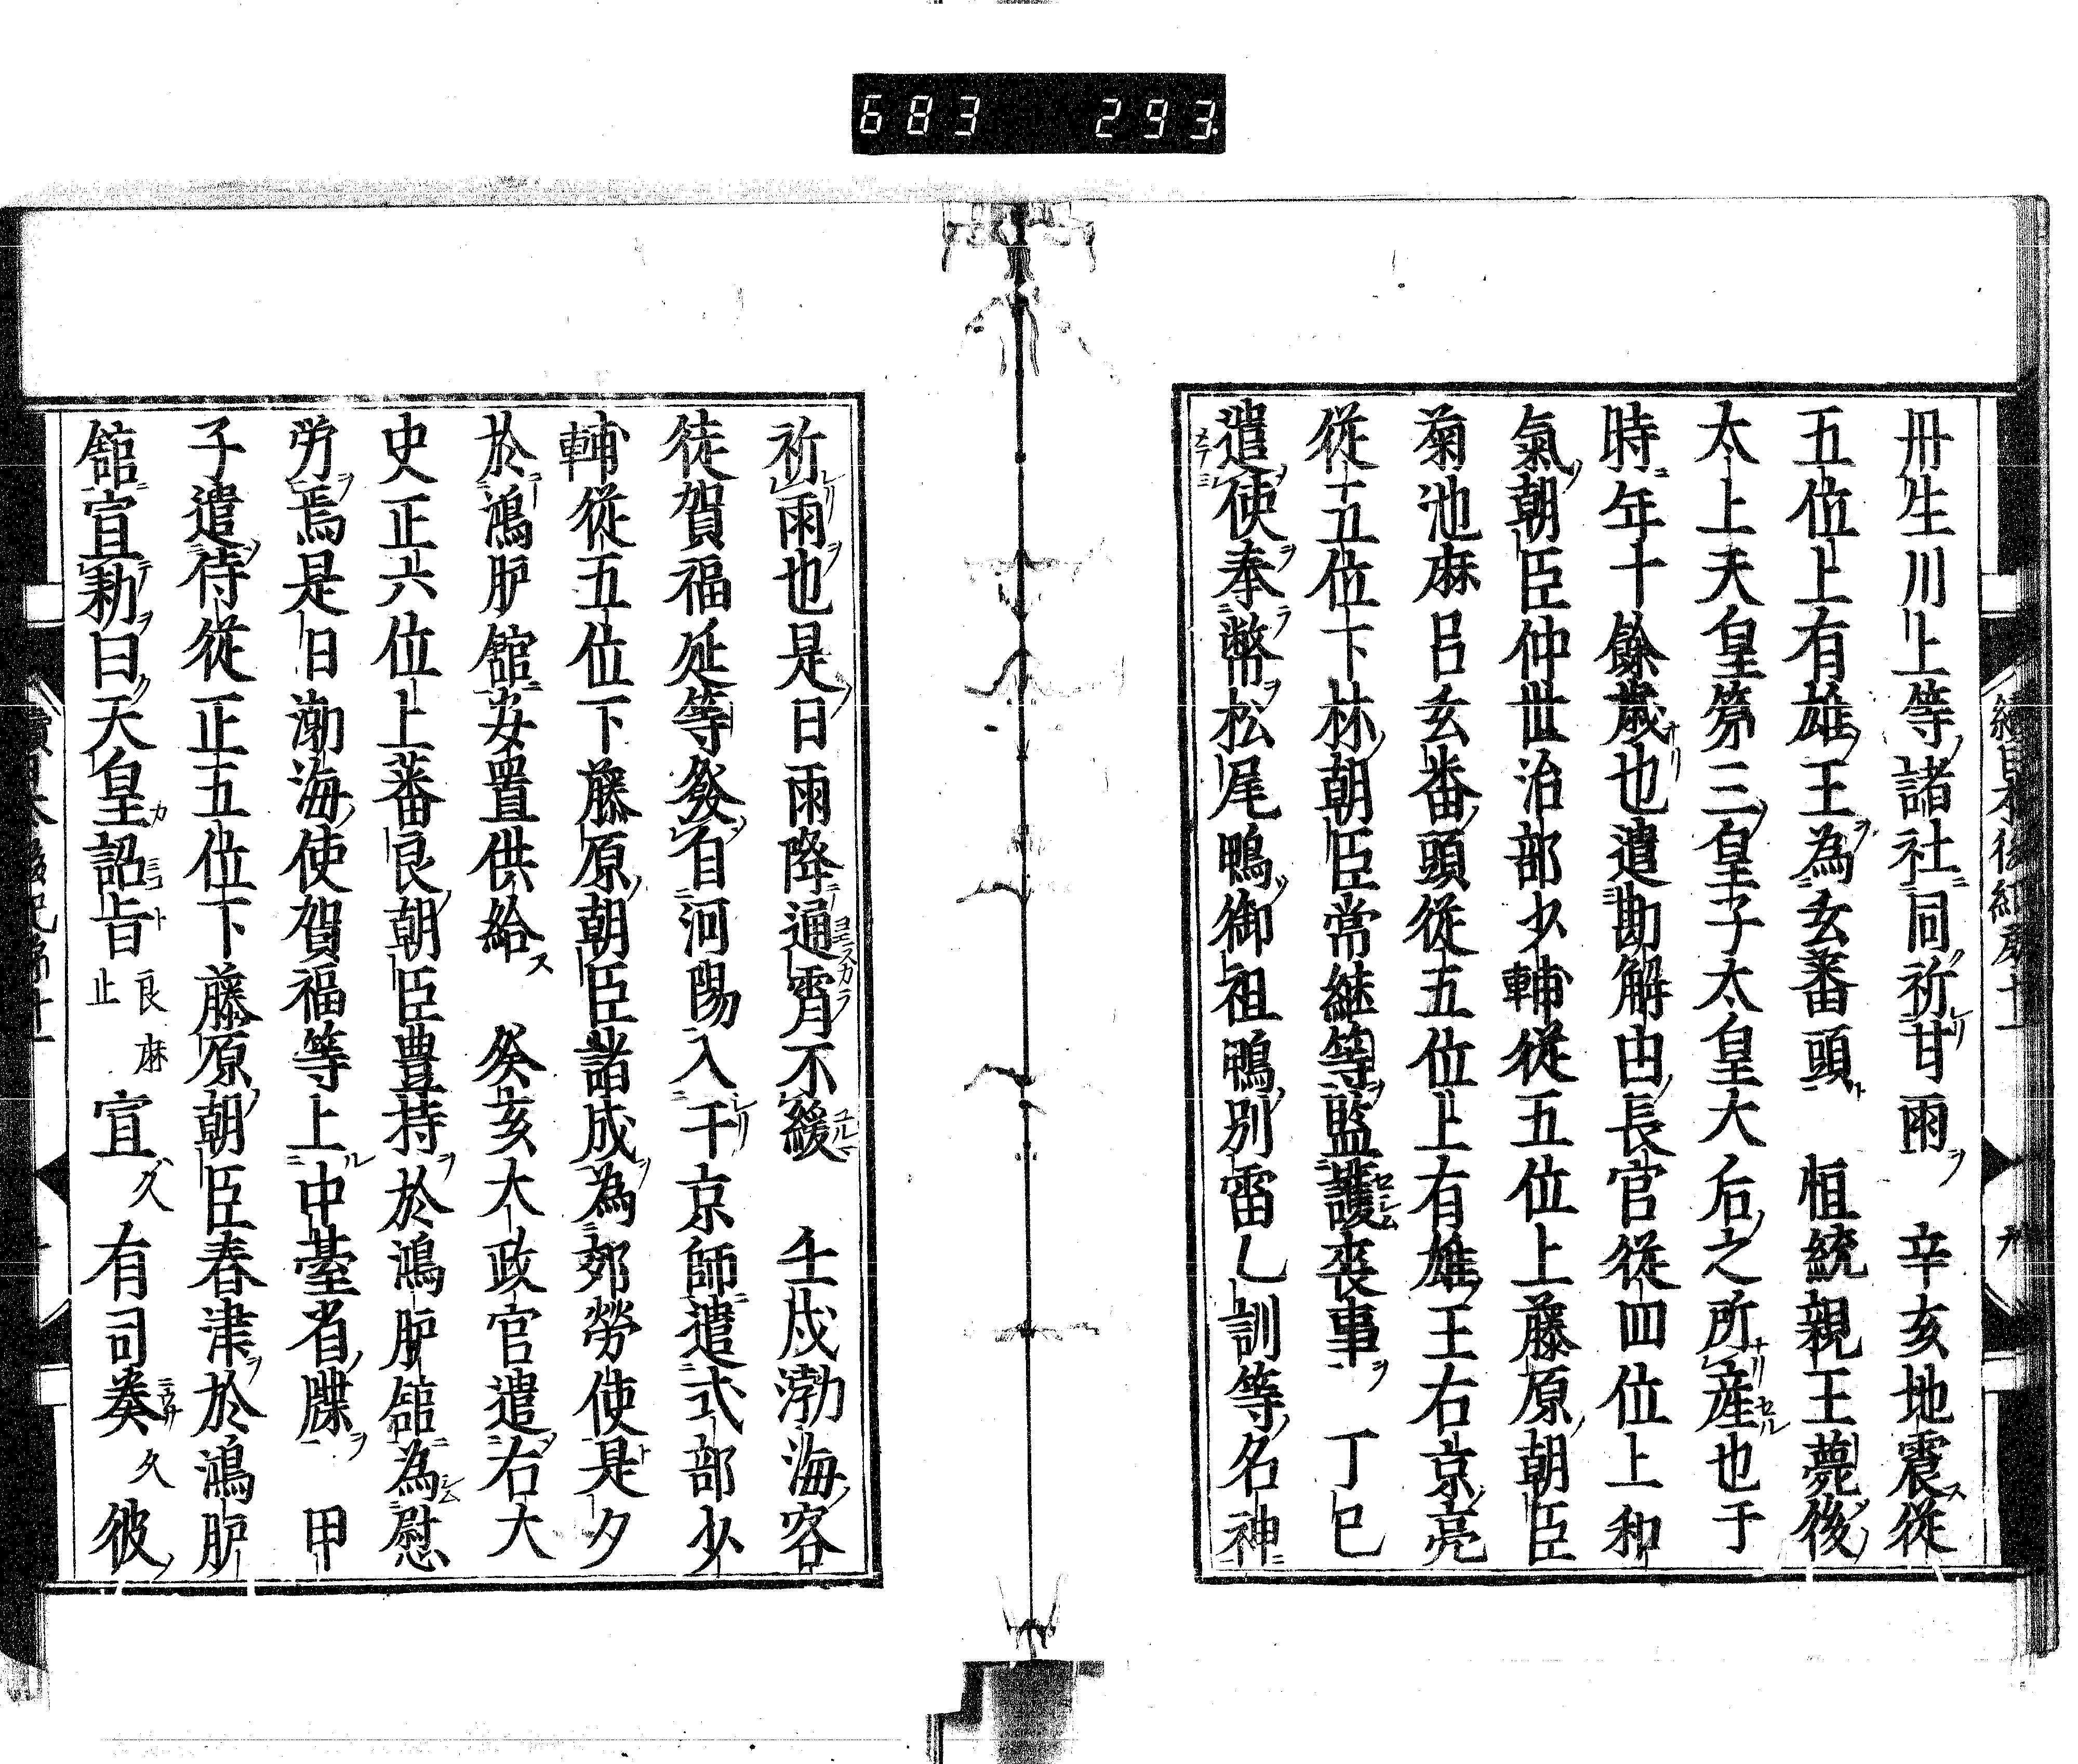 683 293
丹生川上等諸社同祈甘雨 辛亥地震從
五位上有雄王為玄蕃頭 恒統親王薨後
太上天皇第三皇子太皇大后之所産也于
時年十餘歳也遣勘解由長官從四位上和
氣朝臣仲世治部少輔從五位上藤原朝臣
菊池麻呂玄番頭從五位上有雄王右京亮
從五位下林朝臣常継等監護喪事 丁巳
遣使奉幣松尾鴨御祖鴨別雷乙訓等名神
祈雨也是日雨降通霄不緩 壬戌渤海客
徒賀福延等發自河陽入于京師遣式部少
輔從五位下藤原朝臣諸成為郊勞使是夕
於鴻臚館安置供給 癸亥太政官遣右大
史正六位上蕃良朝臣豊持於鴻臚舘為慰
労焉是日渤海使賀福等上中臺省牒 甲
子遣侍從正五位下藤原朝臣春津於鴻臚
舘宣勅曰天皇詔旨良麻止宣久有司奏久彼